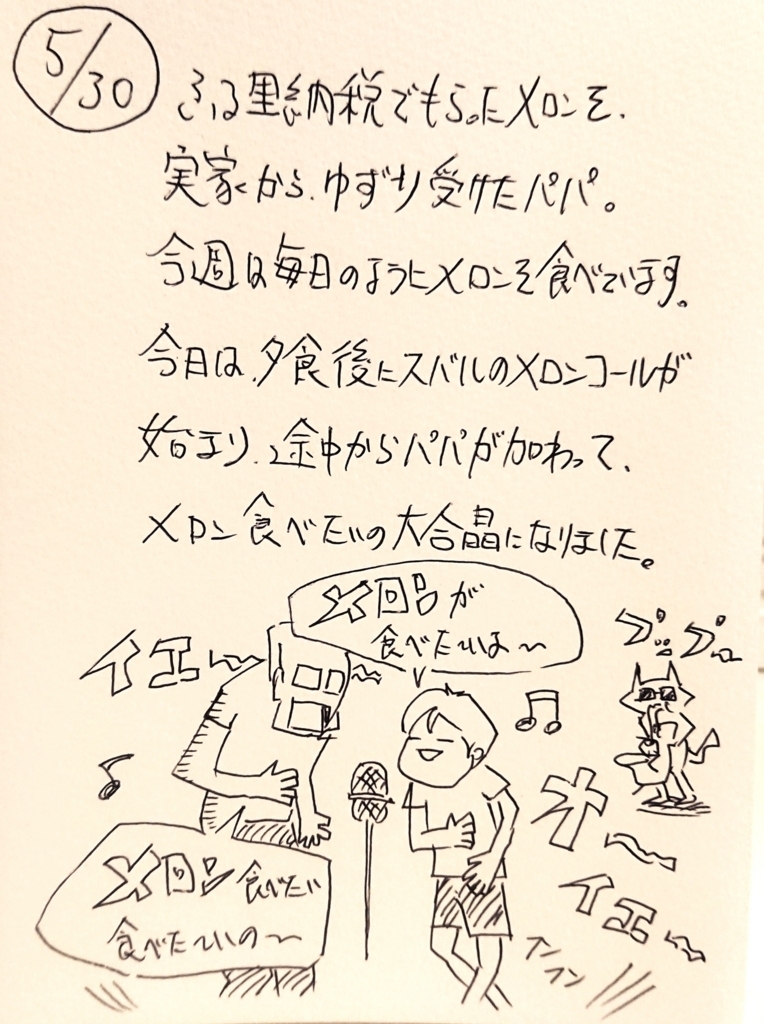 5/30
ふる里納税でもらったメロンを、
実家から、ゆずり受けたパパ。
今週は毎日のようにメロンを食べています。
今日は、夕食後にスバルのメロンコールが
始まり、途中からパパが加わって、
メロン食べたいの大合唱になりました。
メロンが
食べたいよ〜
イエ〜〜
ブ
オ〜
イエ〜
メロン食べたい
食べた〜いの〜
フンフン